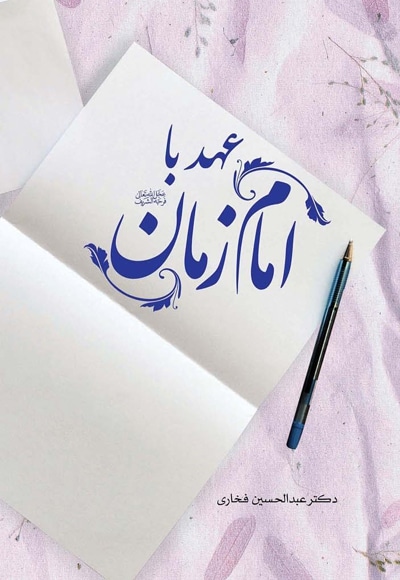 عهد با
امام زمان
عجل الله تعالی
فرجه الشریف
دکتر عبدالحسین فخاری